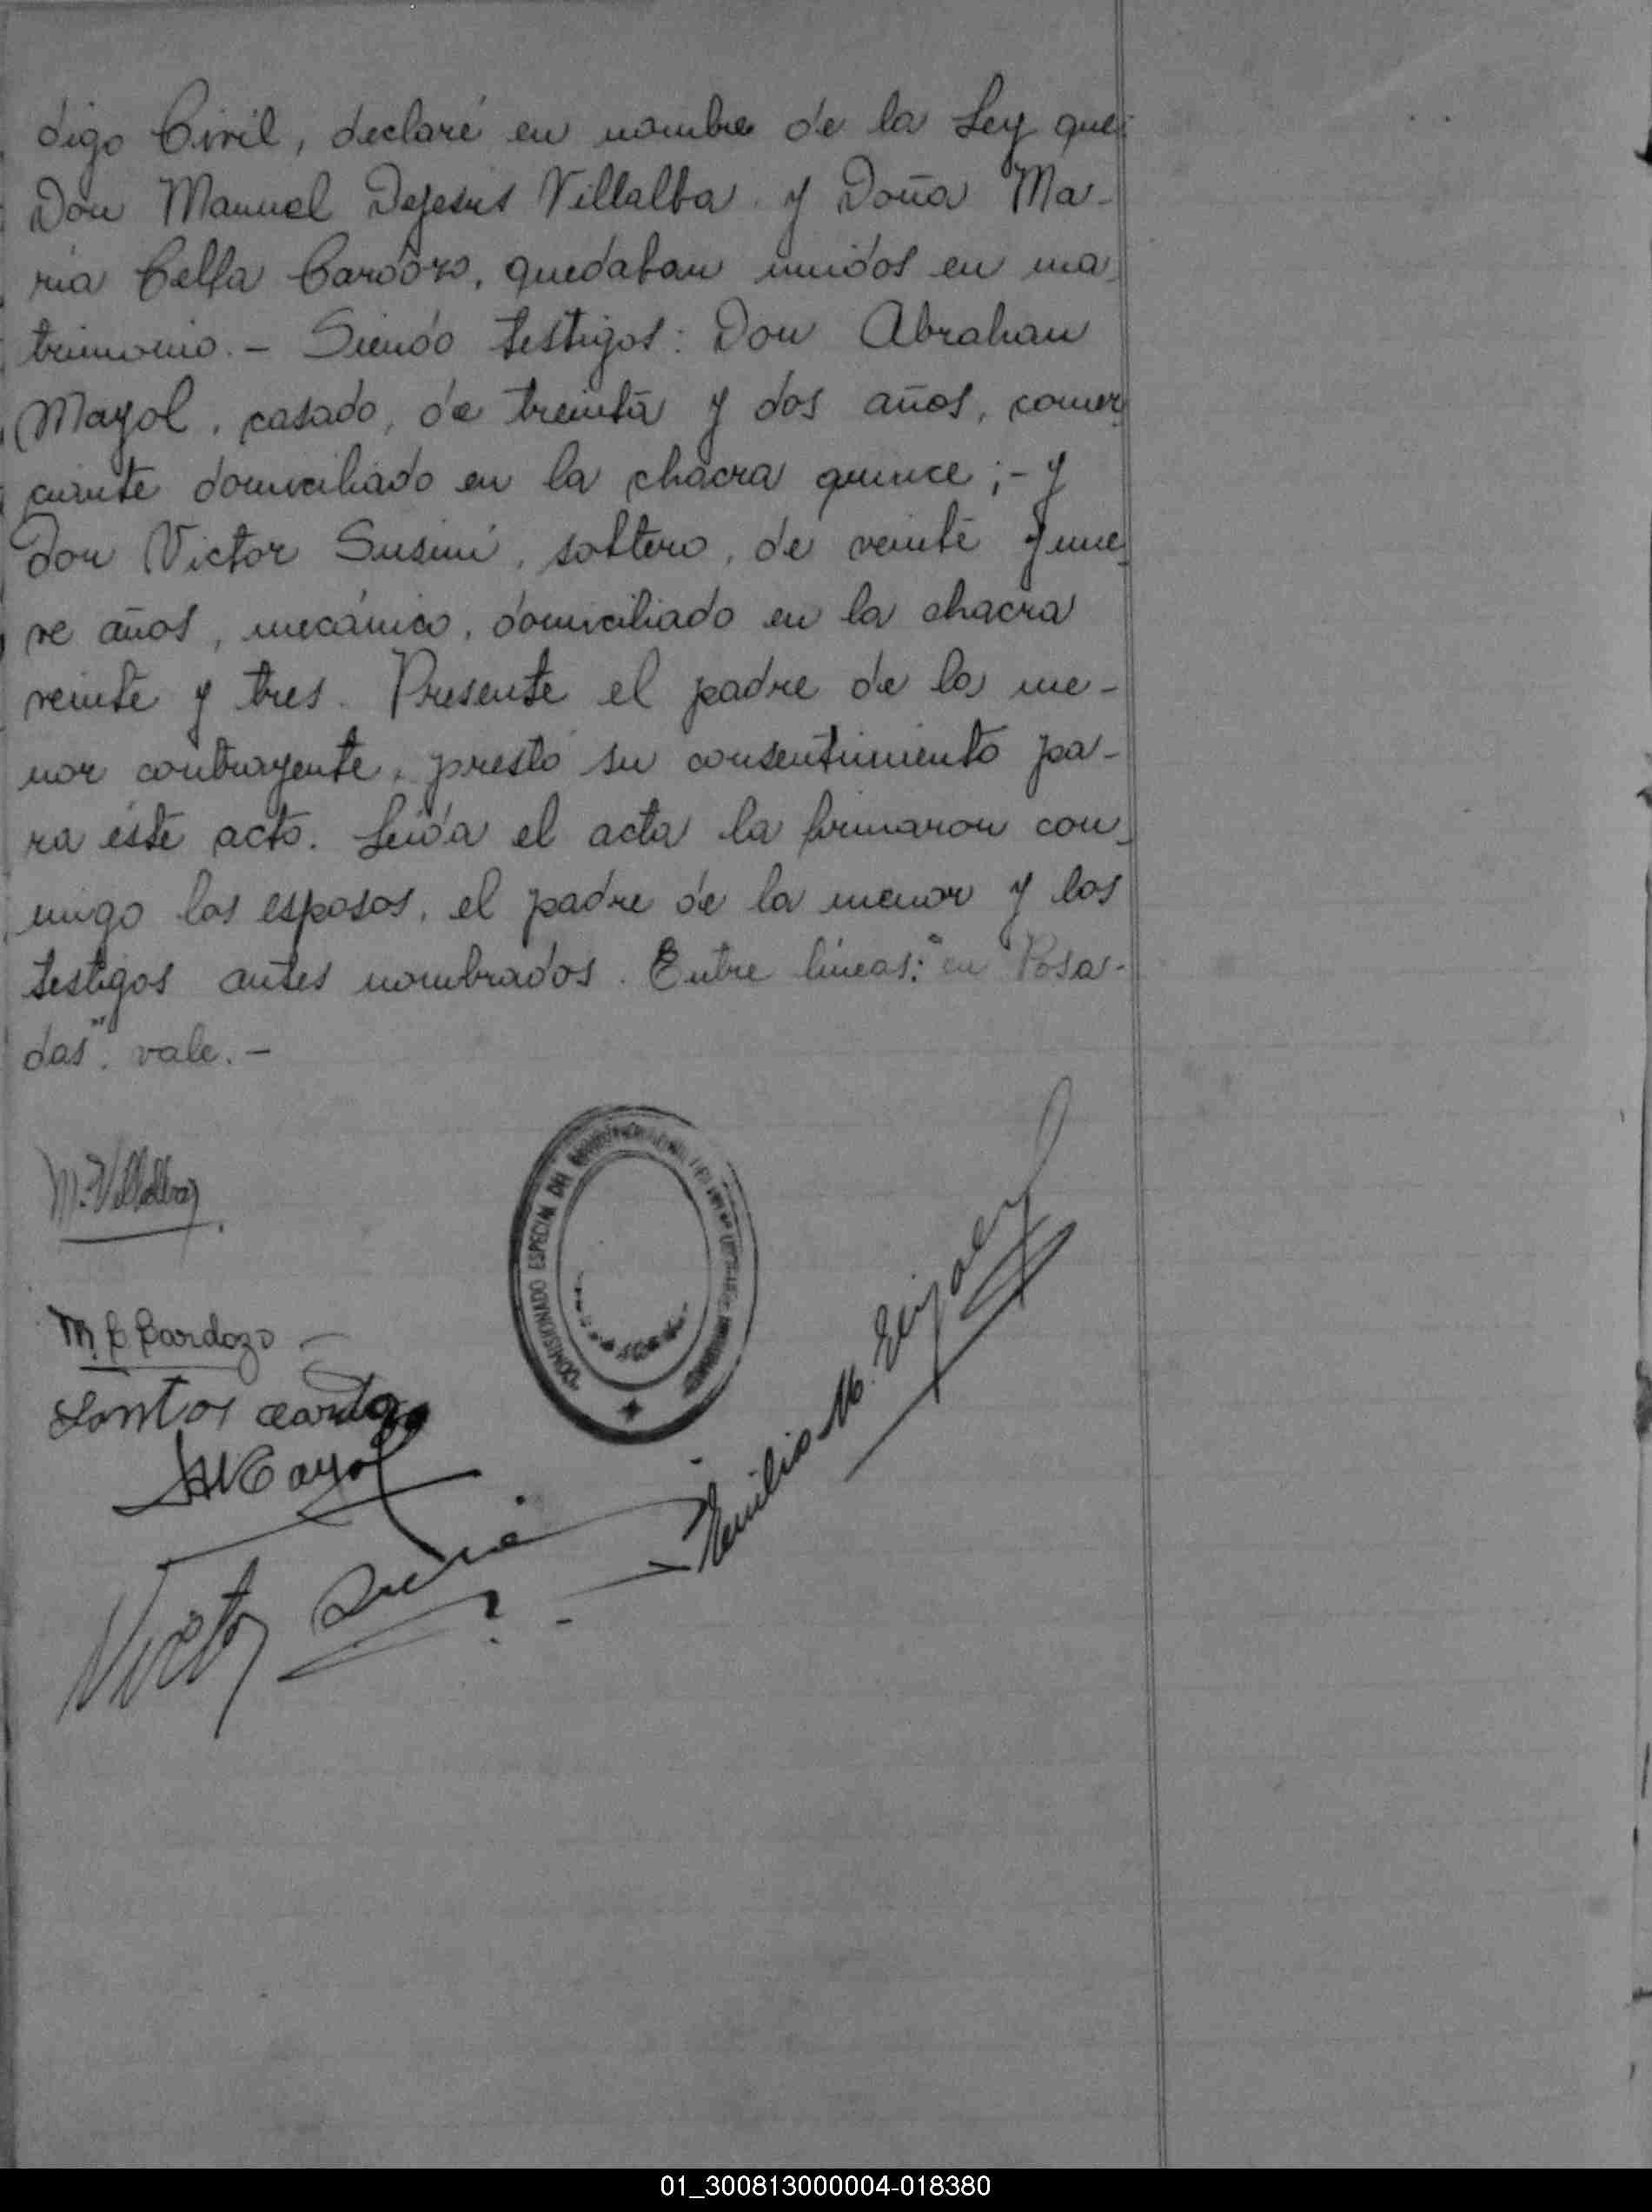 digo Civil, declaré en nombre de la Ley que:
Don Manuel Dejesús Villalba y Doña Ma-
ria Celfa Cardozo, quedaban unidos en ma-
trimonio.- Siendo testigos: Don Abrahan
Mayol, casado, de treinta y dos años, comer-
ciante domiciliado en la chacra quince;- y
Don Victor Susini, soltero, de veinte y nue-
ve años, mecánico, domiciliado en la chacra
veinte y tres. Presente el padre de la me-
nor contrayente, prestó su consentimiento pa-
ra éste acto. Leída el acta la firmaron con-
migo los esposos, el padre de la menor y los
testigos antes nombrados. Entre líneas: "en Posa-
das". vale.-
M. Villalba
M. C. Cardozo
Santos Cardozo
A Mayol
Victor Susini
Emilio M.
COMISIONADO ESPECIAL DEL
01_300813000004-018380